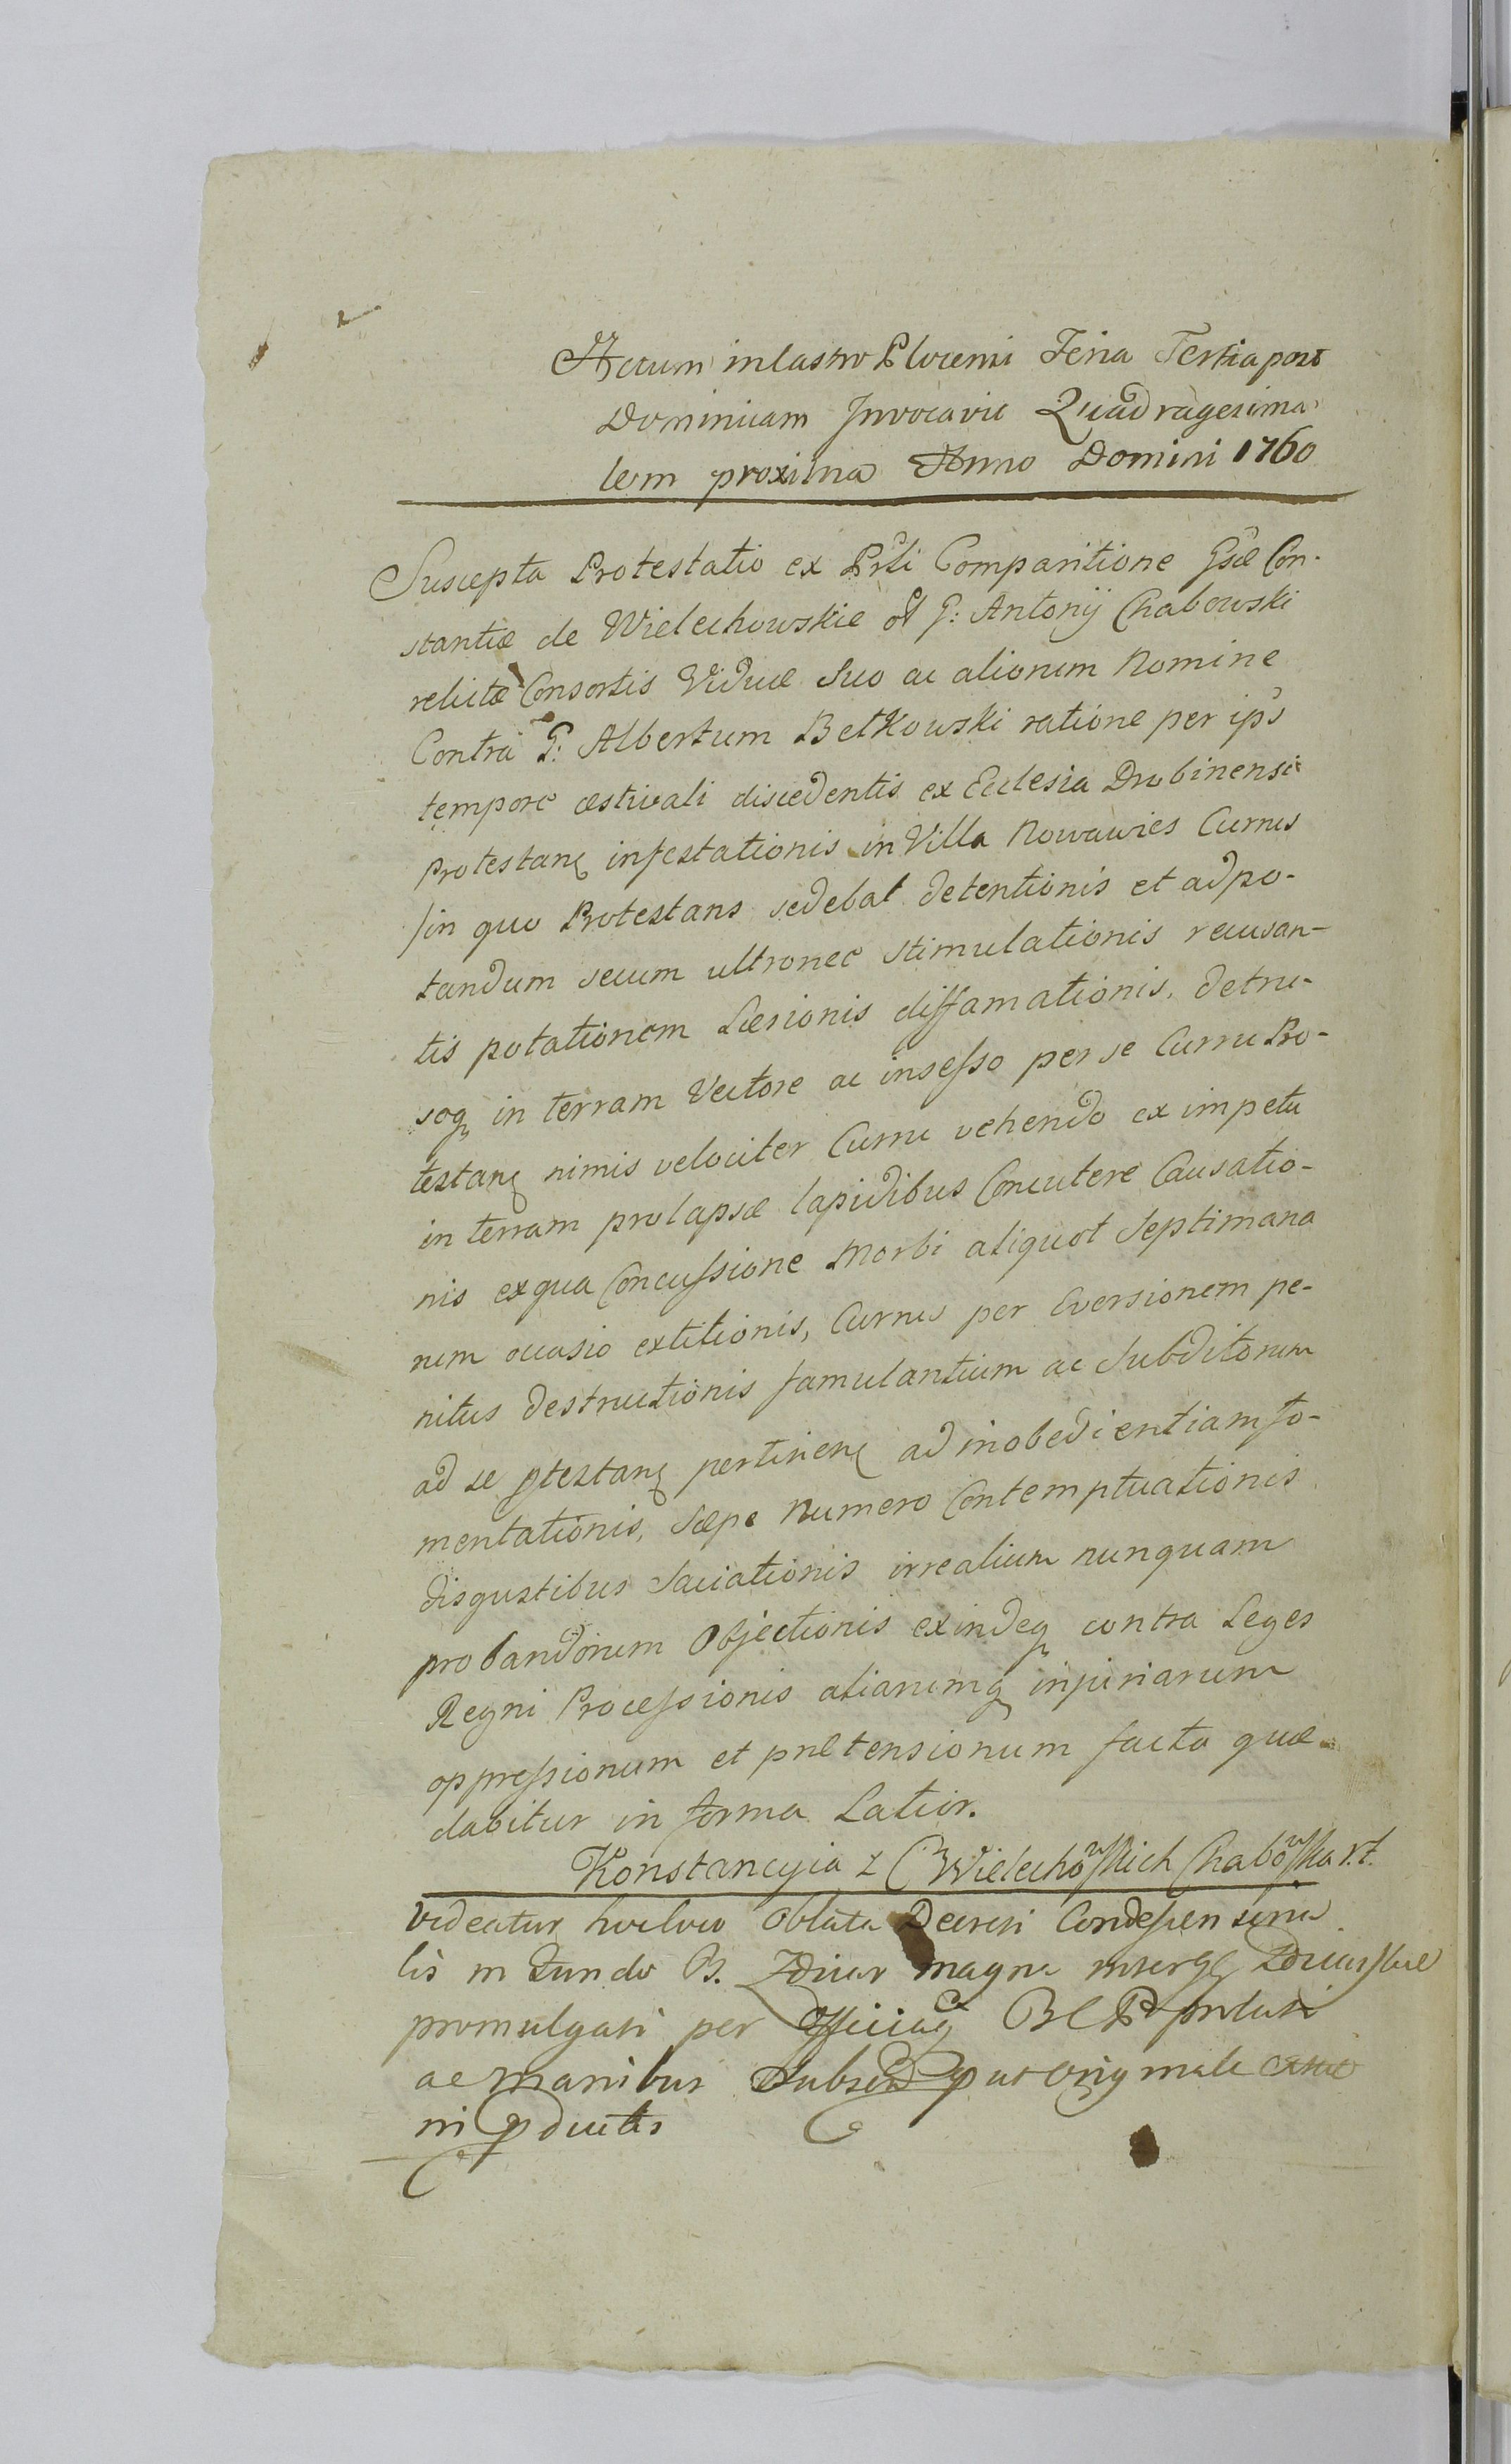 Actum in Castro Plocensi Feria Tertia post
Dominicam Invocavit Quadragesima
lem proxima Anno Domini 1760
Suscepta Protestatio ex Prsti Comparitione Gsæ Con-
stantiæ de Wielechowskie ol G: Antonij Chabowski
relictæ Consortis Viduæ Suo ac aliorum Nomine
Contra G: Albertum Betkowski ratione per ips
tempore æstivali discedentis ex Ecclesia Drobinensi
Protestang infestationis in Villa Nowawies Currus
/in quo Protestans sedebat detentionis et ad po-
tandum secum ultronee stimulationis recusan-
tis potationem Læsionis diffamationis, detru-
soq in terram Vectore ac insesso per se Curru Pro-
testang nimis velociter Curru vehendo ex impetu
in terram prolapsæ lapidibus Concutere Causatio-
nis ex qua Concussione Morbi aliquot Septimana
rum occasio extitionis, Currus per Eversionem pe-
nitus destructionis famulantium ac Subditorum
ad se ptestang pertineng ad inobedientiam fo-
mentationis, Sæpe Numero Contemptuationis
disgustibus Saciationis irrealium nunquam
probandorum Objectionis exindeq contra Leges
Regni Processionis aliarumq injuriarum
oppressionum et prætensionum facta quæ
dabitur in forma Latior.
Konstancyia z Wielechowskich Chabowska
Videatur hocloco Oblata Decreti Condescensiona
lis in Fundo B. Zdwor magna
promulgati per Officiag
ac Manibus Subscr put Originale